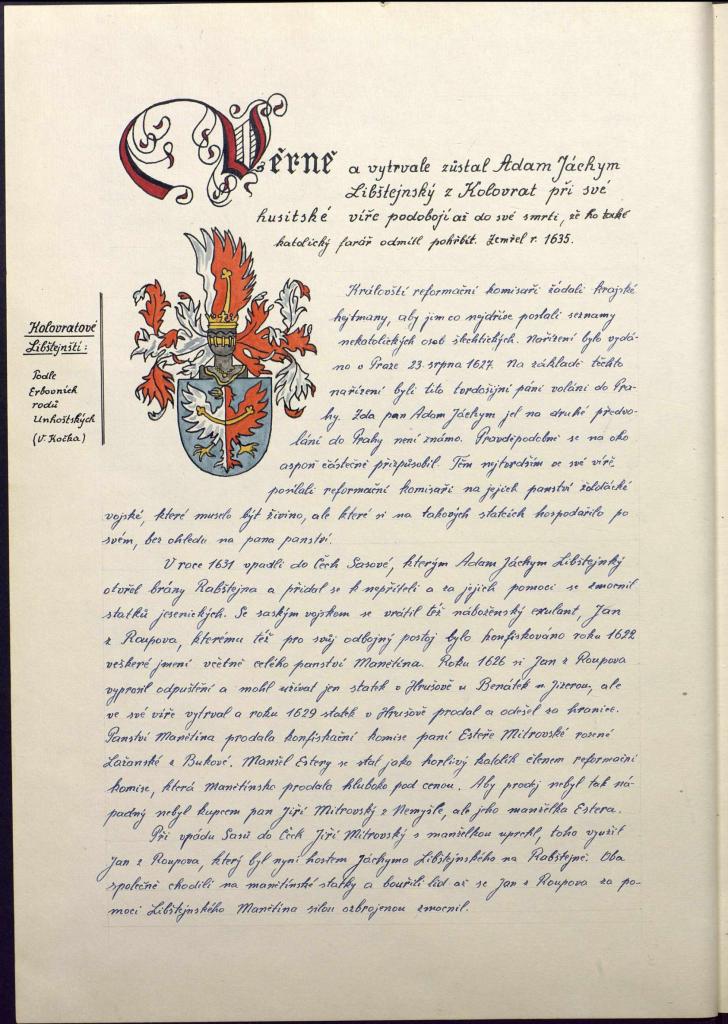 Věrně a vytrvale zůstal Adam Jáchym
Libštejnský z Kolovrat při své
husitské víře podobojí až do své smrti, že ho také
katolický farář odmítl pohřbít. Zemřel r. 1635.
Kolovratové
Libštejnští:
Podle
Erbovních
rodů
Unhoštských
(V. Kočka)
Královští reformační komisaři žádali krajské
hejtmany, aby jim co nejdříve poslali seznamy
nekatolických osob šlechtických. Nařízení bylo vydá-
no v Praze 23. srpna 1627. Na základě těchto
nařízení byli tito tvrdošíjní páni voláni do Pra-
hy. Zda pan Adam Jáchym jel na druhé předvo-
lání do Prahy není známo. Pravděpodobně se na oko
aspoň částečně přizpůsobil. Těm nejtvrdším ve své víře
posílali reformační komisaři na jejich panství žoldácké
vojsko, které muselo být živeno, ale které si na takových statcích hospodařilo po
svém, bez ohledu na pana panství.
V roce 1631 vpadli do Čech Sasové, kterým Adam Jáchym Libštejnský
otevřel brány Rabštejna a přidal se k nepříteli a za jejich pomoci se zmocnil
statků jesenických. Se saským vojskem se vrátil též náboženský exulant, Jan
z Roupova, kterému též pro svůj odbojný postoj bylo konfiskováno roku 1622
veškeré jmění včetně celého panství Manětína. Roku 1626 si Jan z Roupova
vyprosil odpuštění a mohl užívat jen statek v Hrušově u Benátek n. Jizerou, ale
ve své víře vytrval a roku 1629 statek v Hrušově prodal a odešel za hranice.
Panství Manětína prodala konfiskační komise paní Esteře Mitrovské rozené
Lažanské z Bukové. Manžel Estery se stal jako horlivý katolík členem reformační
komise, která Manětínsko prodala hluboko pod cenou. Aby prodej nebyl tak ná-
padný nebyl kupcem pan Jiří Mitrovský z Nemyšle, ale jeho manželka Estera.
Při vpádu Sasů do Čech Jiří Mitrovský s manželkou uprchl, toho využil
Jan z Roupova, který byl nyní hostem Jáchyma Libštejnského na Rabštejně. Oba
společně chodili na manětínské statky a bouřili lid až se Jan z Roupova za po-
moci Libštejnského Manětína silou ozbrojenou zmocnil.